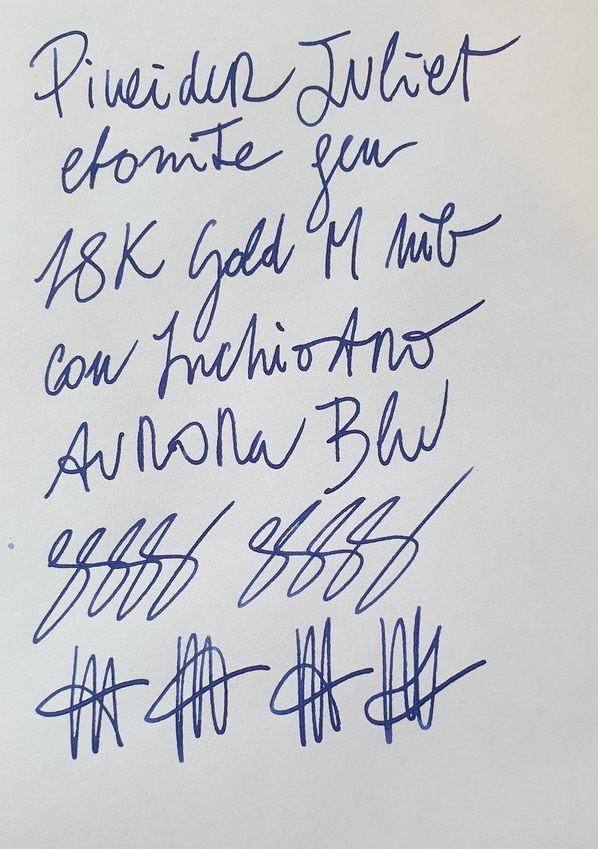 Pineider Juliet
ebonite gen
18K Gold M nib
con Inchiostro
Aurora Blu